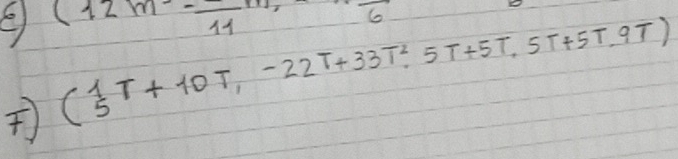 6) (12m² - /11 m, /6
7) (1/5 T + 10T, -22T+33T². 5T+5T. 5T+5T.9T)